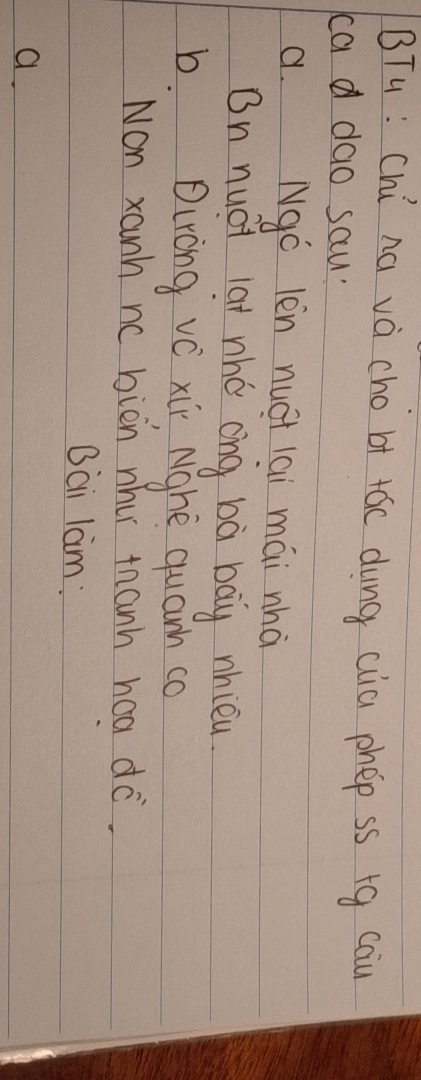 BT4: Chỉ ra và cho bt tác dụng của phép ss tg câu
ca d dao sau:
a. Ngó lên nuột lạt mái nhà
Bn nuột lạt nhớ ông bà bấy nhiêu.
b. Đường vô xứ Nghệ quanh co
Non xanh nc biến như tranh hoạ đồ.
Bài làm:
a.